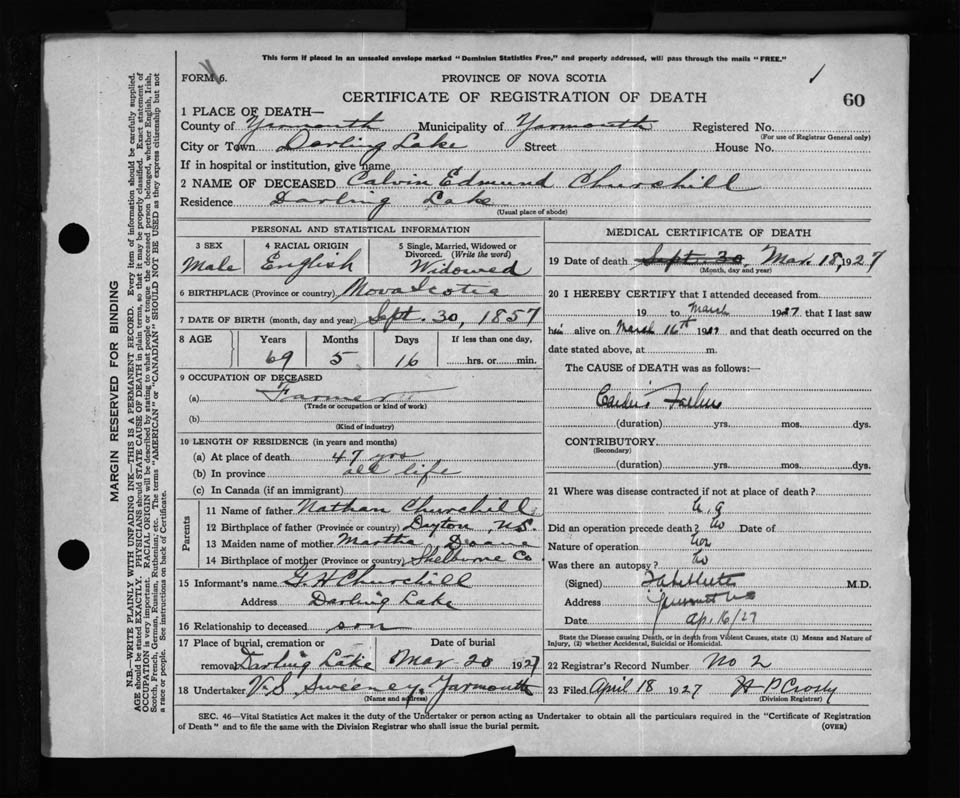 This form if placed in an unsealed envelope marked "Dominion Statistics Free," and properly addressed, will pass through the mails "FREE."
FORM 6.
PROVINCE OF NOVA SCOTIA
1
CERTIFICATE OF REGISTRATION OF DEATH
60
1 PLACE OF DEATH—
County of Yarmouth Municipality of Yarmouth Registered No.
(For use of Registrar General only)
City or Town Darling Lake Street House No.
If in hospital or institution, give name
2 NAME OF DECEASED Calvin Edmund Churchill
Residence Darling Lake
(Usual place of abode)
PERSONAL AND STATISTICAL INFORMATION
3 SEX 4 RACIAL ORIGIN 5 Single, Married, Widowed or Divorced. (Write the word)
Male English Widowed
6 BIRTHPLACE (Province or country) Nova Scotia
7 DATE OF BIRTH (month, day and year) Sept. 30, 1857
8 AGE Years Months Days If less than one day,
69 5 16 hrs. or min.
9 OCCUPATION OF DECEASED
(a) Farmer
(Trade or occupation or kind of work)
(b)
(Kind of industry)
10 LENGTH OF RESIDENCE (in years and months)
(a) At place of death 47 yrs
(b) In province all life
(c) In Canada (if an immigrant)
Parents
11 Name of father Nathan Churchill
12 Birthplace of father (Province or country) Dayton, N.S.
13 Maiden name of mother Martha Doane
14 Birthplace of mother (Province or country) Shelburne Co.
15 Informant's name G. H Churchill
Address Darling Lake
16 Relationship to deceased son
17 Place of burial, cremation or Date of burial
removal Darling Lake Mar 20 1927
18 Undertaker V. S. Sweeney, Yarmouth
(Name and address)
MEDICAL CERTIFICATE OF DEATH
19 Date of death Sept. 30, Mar. 18, 1927
(Month, day and year)
20 I HEREBY CERTIFY that I attended deceased from
19 to March 1927 that I last saw
him alive on March 16th 1927 and that death occurred on the
date stated above, at m.
The CAUSE of DEATH was as follows:—
Cardiac Failure
(duration) yrs. mos. dys.
CONTRIBUTORY
(Secondary)
(duration) yrs. mos. dys.
21 Where was disease contracted if not at place of death?
Did an operation precede death? No Date of
Nature of operation
Was there an autopsy? No
(Signed) M.D.
Address Yarmouth NS
Date Ap. 16/27
State the Disease causing Death, or in death from Violent Causes, state (1) Means and Nature of
Injury, (2) whether Accidental, Suicidal or Homicidal.
22 Registrar's Record Number No 2
23 Filed April 18 1927 H P Crosby
(Division Registrar)
SEC. 46—Vital Statistics Act makes it the duty of the Undertaker or person acting as Undertaker to obtain all the particulars required in the "Certificate of Registration
of Death" and to file the same with the Division Registrar who shall issue the burial permit.
(OVER)
MARGIN RESERVED FOR BINDING
N.B.—WRITE PLAINLY WITH UNFADING INK—THIS IS A PERMANENT RECORD. Every item of information should be carefully supplied.
AGE should be stated EXACTLY. PHYSICIANS should STATE CAUSE OF DEATH in plain terms, so that it may be properly classified. Exact statement of
OCCUPATION is very important. RACIAL ORIGIN will be described by stating to what people or tongue the deceased person belonged, whether English, Irish,
Scotch, French, German, Russian, Ruthenian, etc. The terms "AMERICAN" or "CANADIAN" SHOULD NOT BE USED as they express citizenship but not
a race or people. See instructions on back of Certificate.